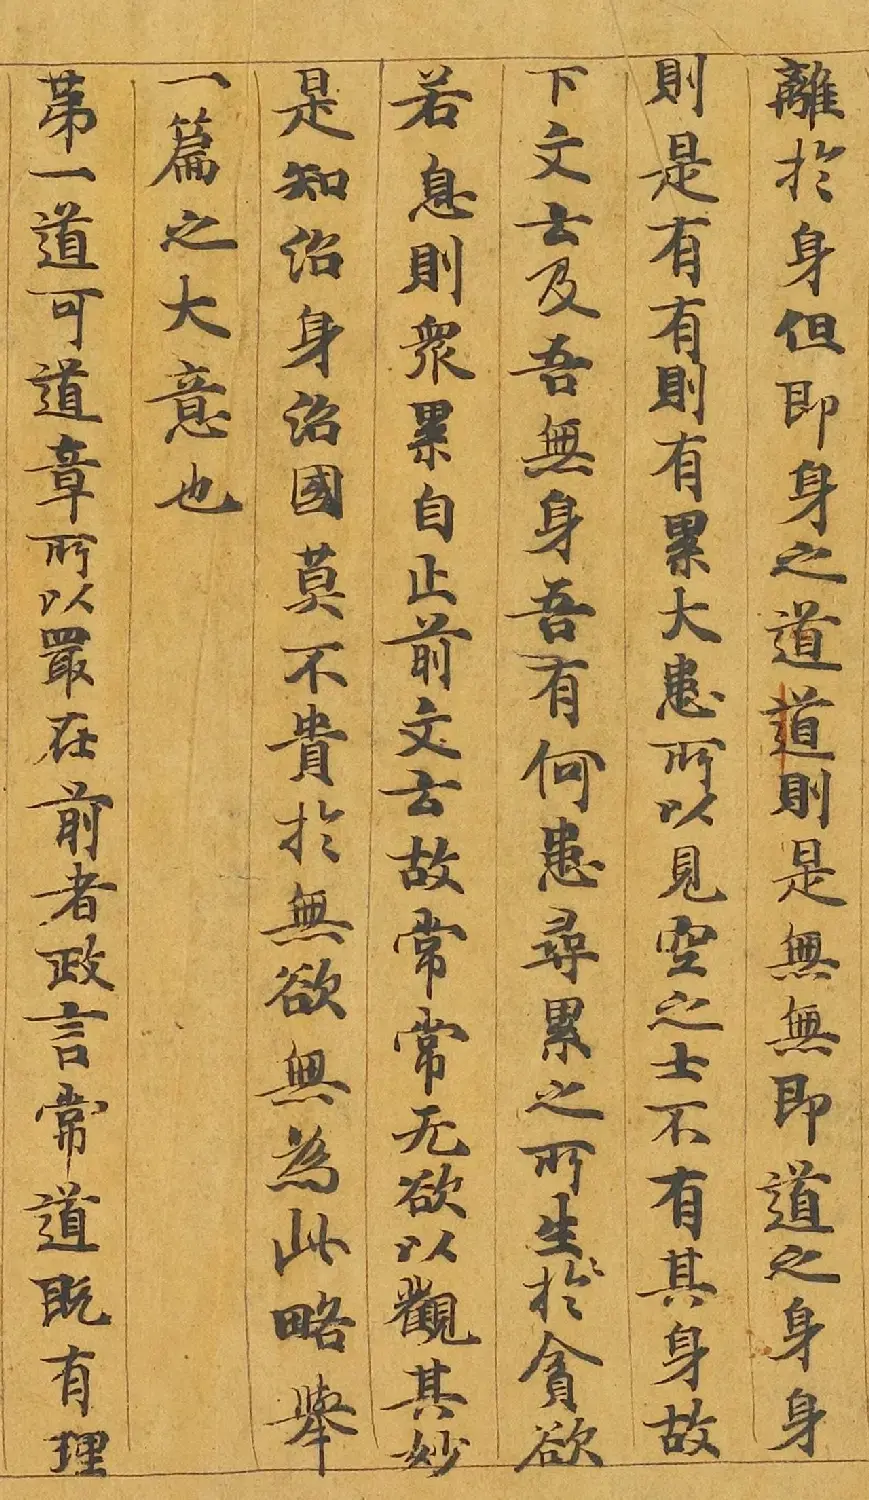 離於身但即身之道道則是無無即道之身身
則是有有則有累大患所以見空之士不有其身故
下文云及吾無身吾有何患尋累之所生於貪欲
若息則眾累自止前文云故常常无欲以觀其妙
是知治身治國莫不貴於無欲無為此略舉
一篇之大意也
第一道可道章所以最在前者政言常道既有理